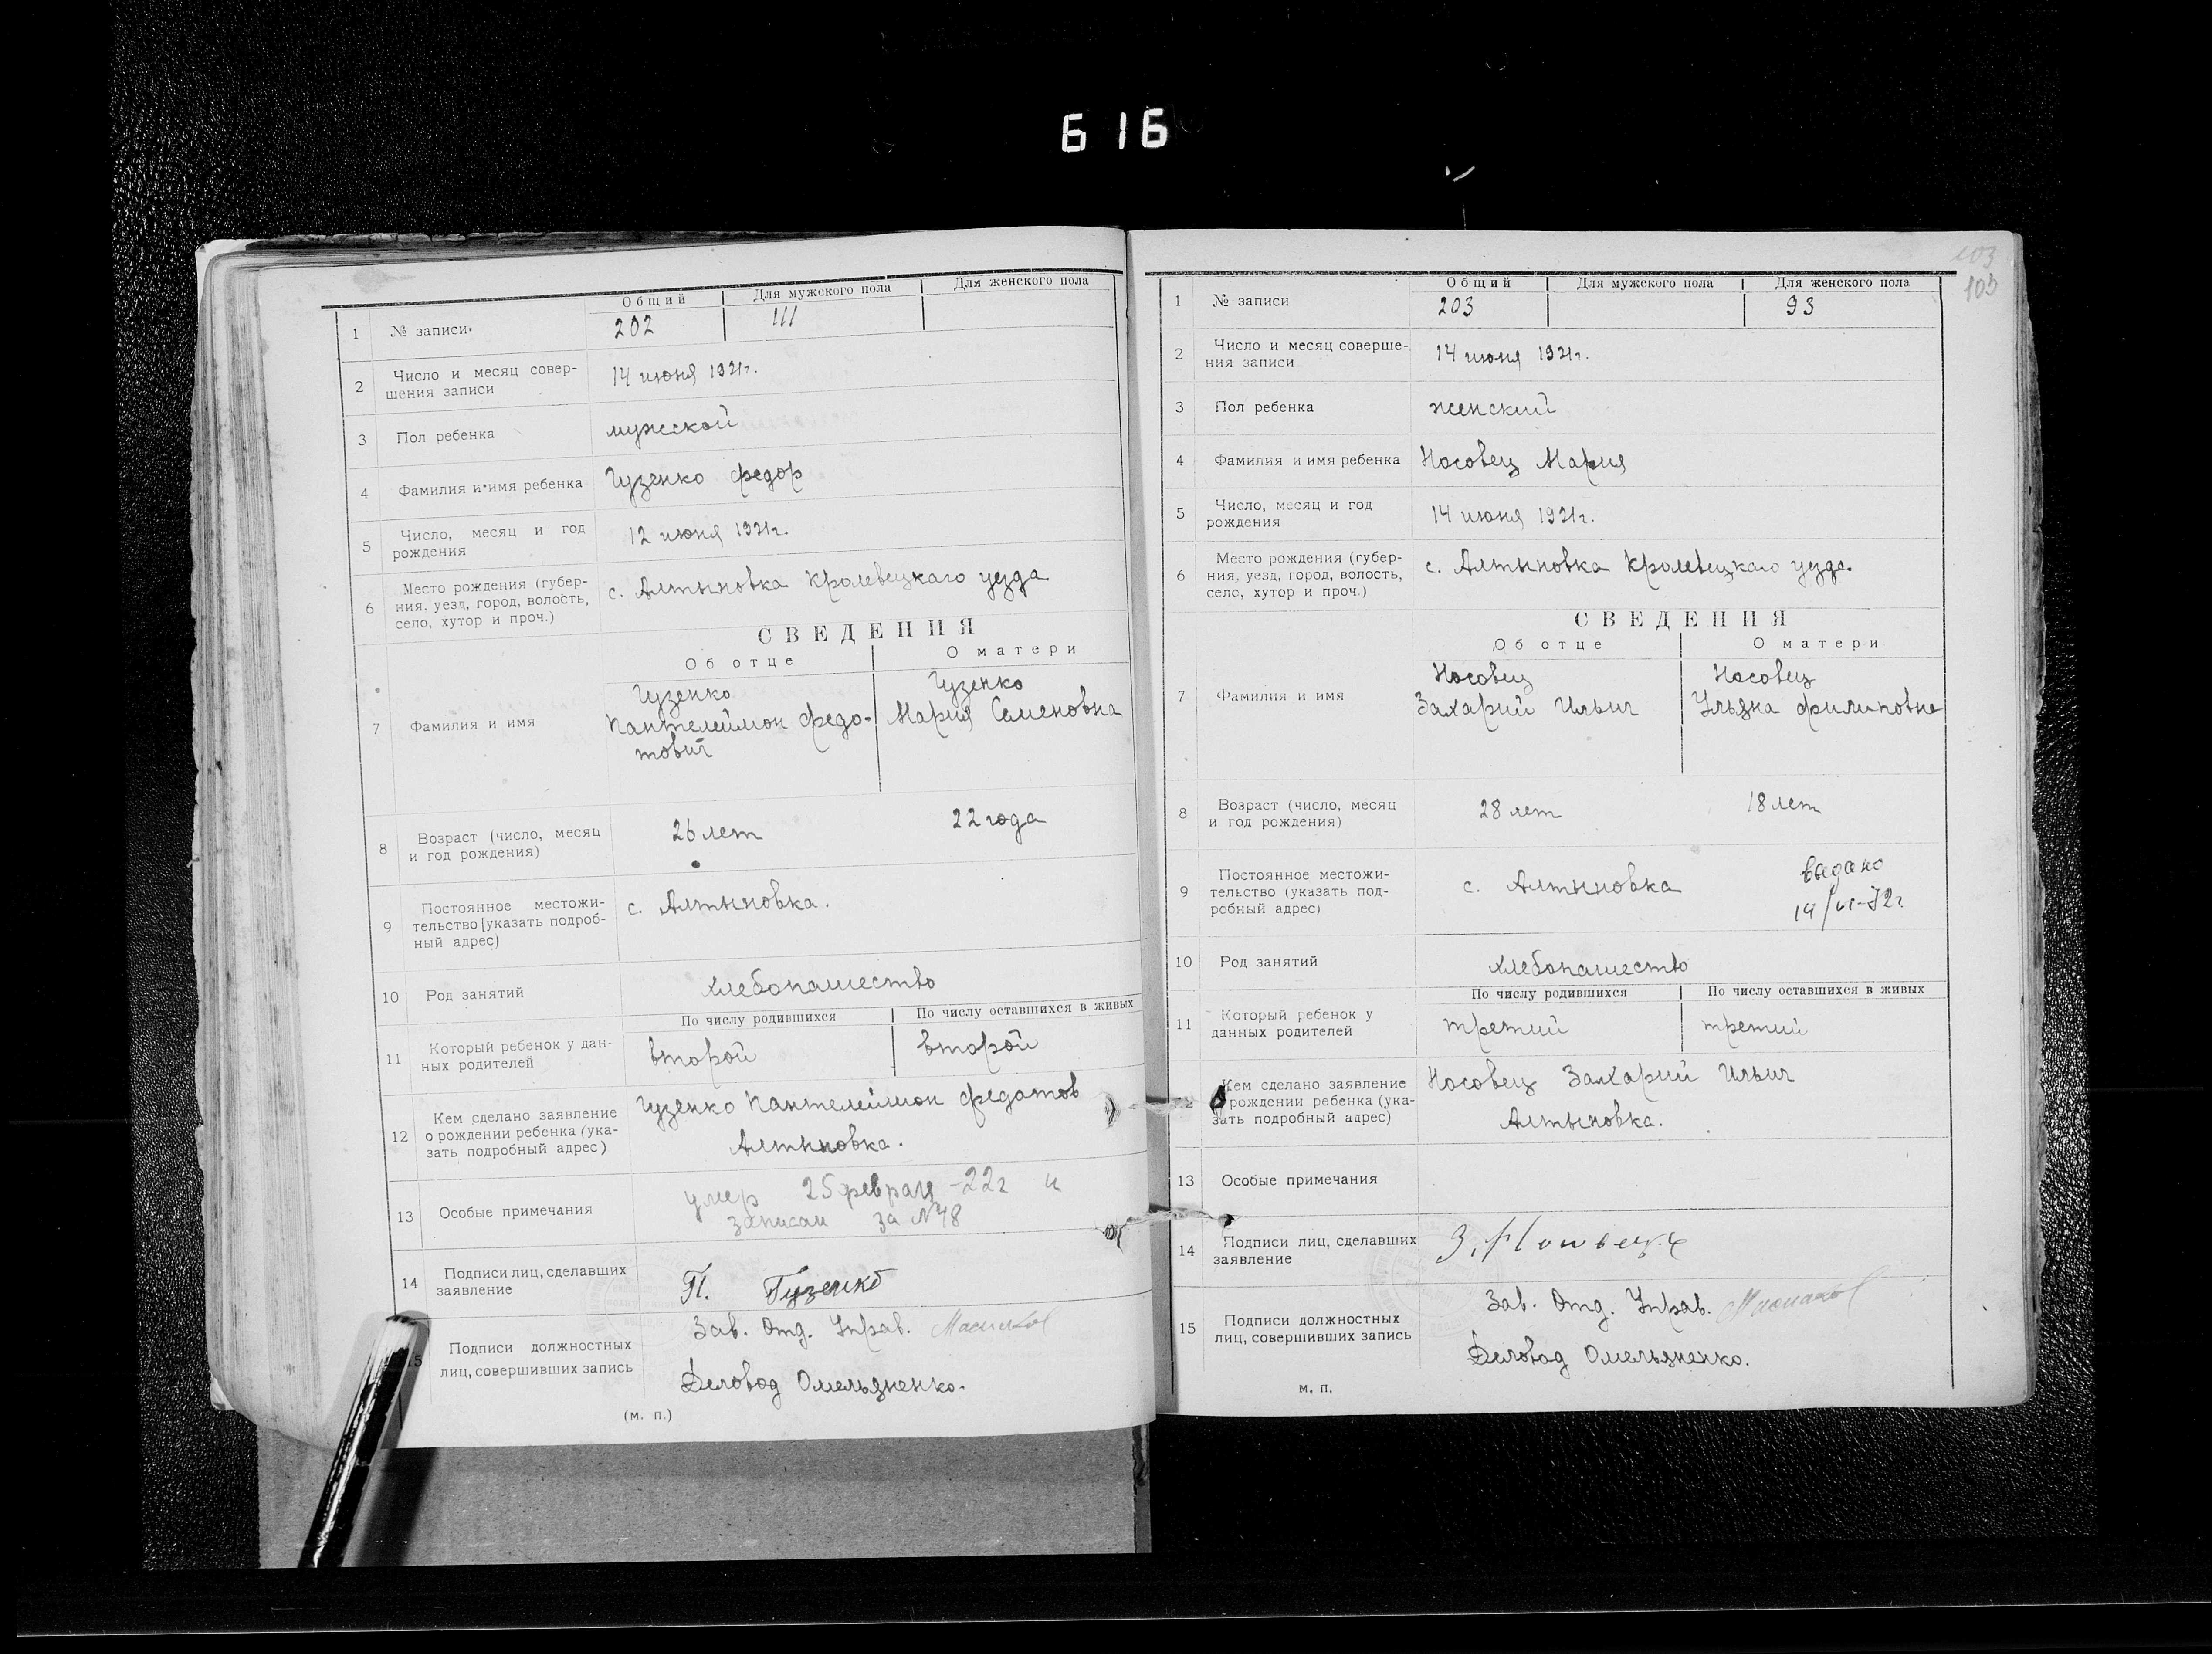 616
Общий Для мужского пола Для женского пола
1 № записи 202 111
2 Число и месяц совер-
шения записи 14 июня 1921г.
3 Пол ребенка мужской
4 Фамилия и имя ребенка Гузенко Федор
5 Число, месяц и год
рождения 12 июня 1921г.
6 Место рождения (губер-
ния, уезд, город, волость,
село, хутор и проч.) с. Алтыновка Кролевецкаго уезда
СВЕДЕНИЯ
Об отце О матери
7 Фамилия и имя
Гузенко Гузенко
Пантелеймон Федо- Мария Семеновна
тович
8 Возраст (число, месяц
и год рождения) 26 лет 22 года
9 Постоянное местожи-
тельство [указать подроб-
ный адрес) с. Алтыновка.
10 Род занятий хлебопашество
По числу родившихся По числу оставшихся в живых
11 Который ребенок у дан-
ных родителей второй второй
12 Кем сделано заявление
о рождении ребенка (ука-
зать подробный адрес)
Гузенко Пантелеймон Федотов
Алтыновка.
13 Особые примечания
умер 25 феврал -22г и
записан за №48
14 Подписи лиц, сделавших
заявление П. Гузенко
15 Подписи должностных
лиц, совершивших запись
Зав. Отд. Управ.
Деловод Омельяненко.
(м. п.)
103
103
Общий Для мужского пола Для женского пола
1 № записи 203 93
2 Число и месяц соверше-
ния записи 14 июня 1921г.
3 Пол ребенка женский
4 Фамилия и имя ребенка Носовец Мария
5 Число, месяц и год
рождения 14 июня 1921г.
6 Место рождения (губер-
ния, уезд, город, волость,
село, хутор и проч.) с. Алтыновка Кролевецкаго уезда.
СВЕДЕНИЯ
Об отце О матери
7 Фамилия и имя
Носовец Носовец
Захарий Ильич Ульяна Филиповна
8 Возраст (число, месяц
и год рождения) 28 лет 18 лет
9 Постоянное местожи-
тельство (указать под-
робный адрес) с. Алтыновка
выдано
14/VI-72г
10 Род занятий хлебопашество
По числу родившихся По числу оставшихся в живых
11 Который ребенок у
данных родителей третий третий
12 Кем сделано заявление
о рождении ребенка (ука-
зать подробный адрес)
Носовец Захарий Ильич
Алтыновка.
13 Особые примечания
14 Подписи лиц, сделавших
заявление
15 Подписи должностных
лиц, совершивших запись
Зав. Отд. Управ.
Деловод Омельяненко.
м. п.